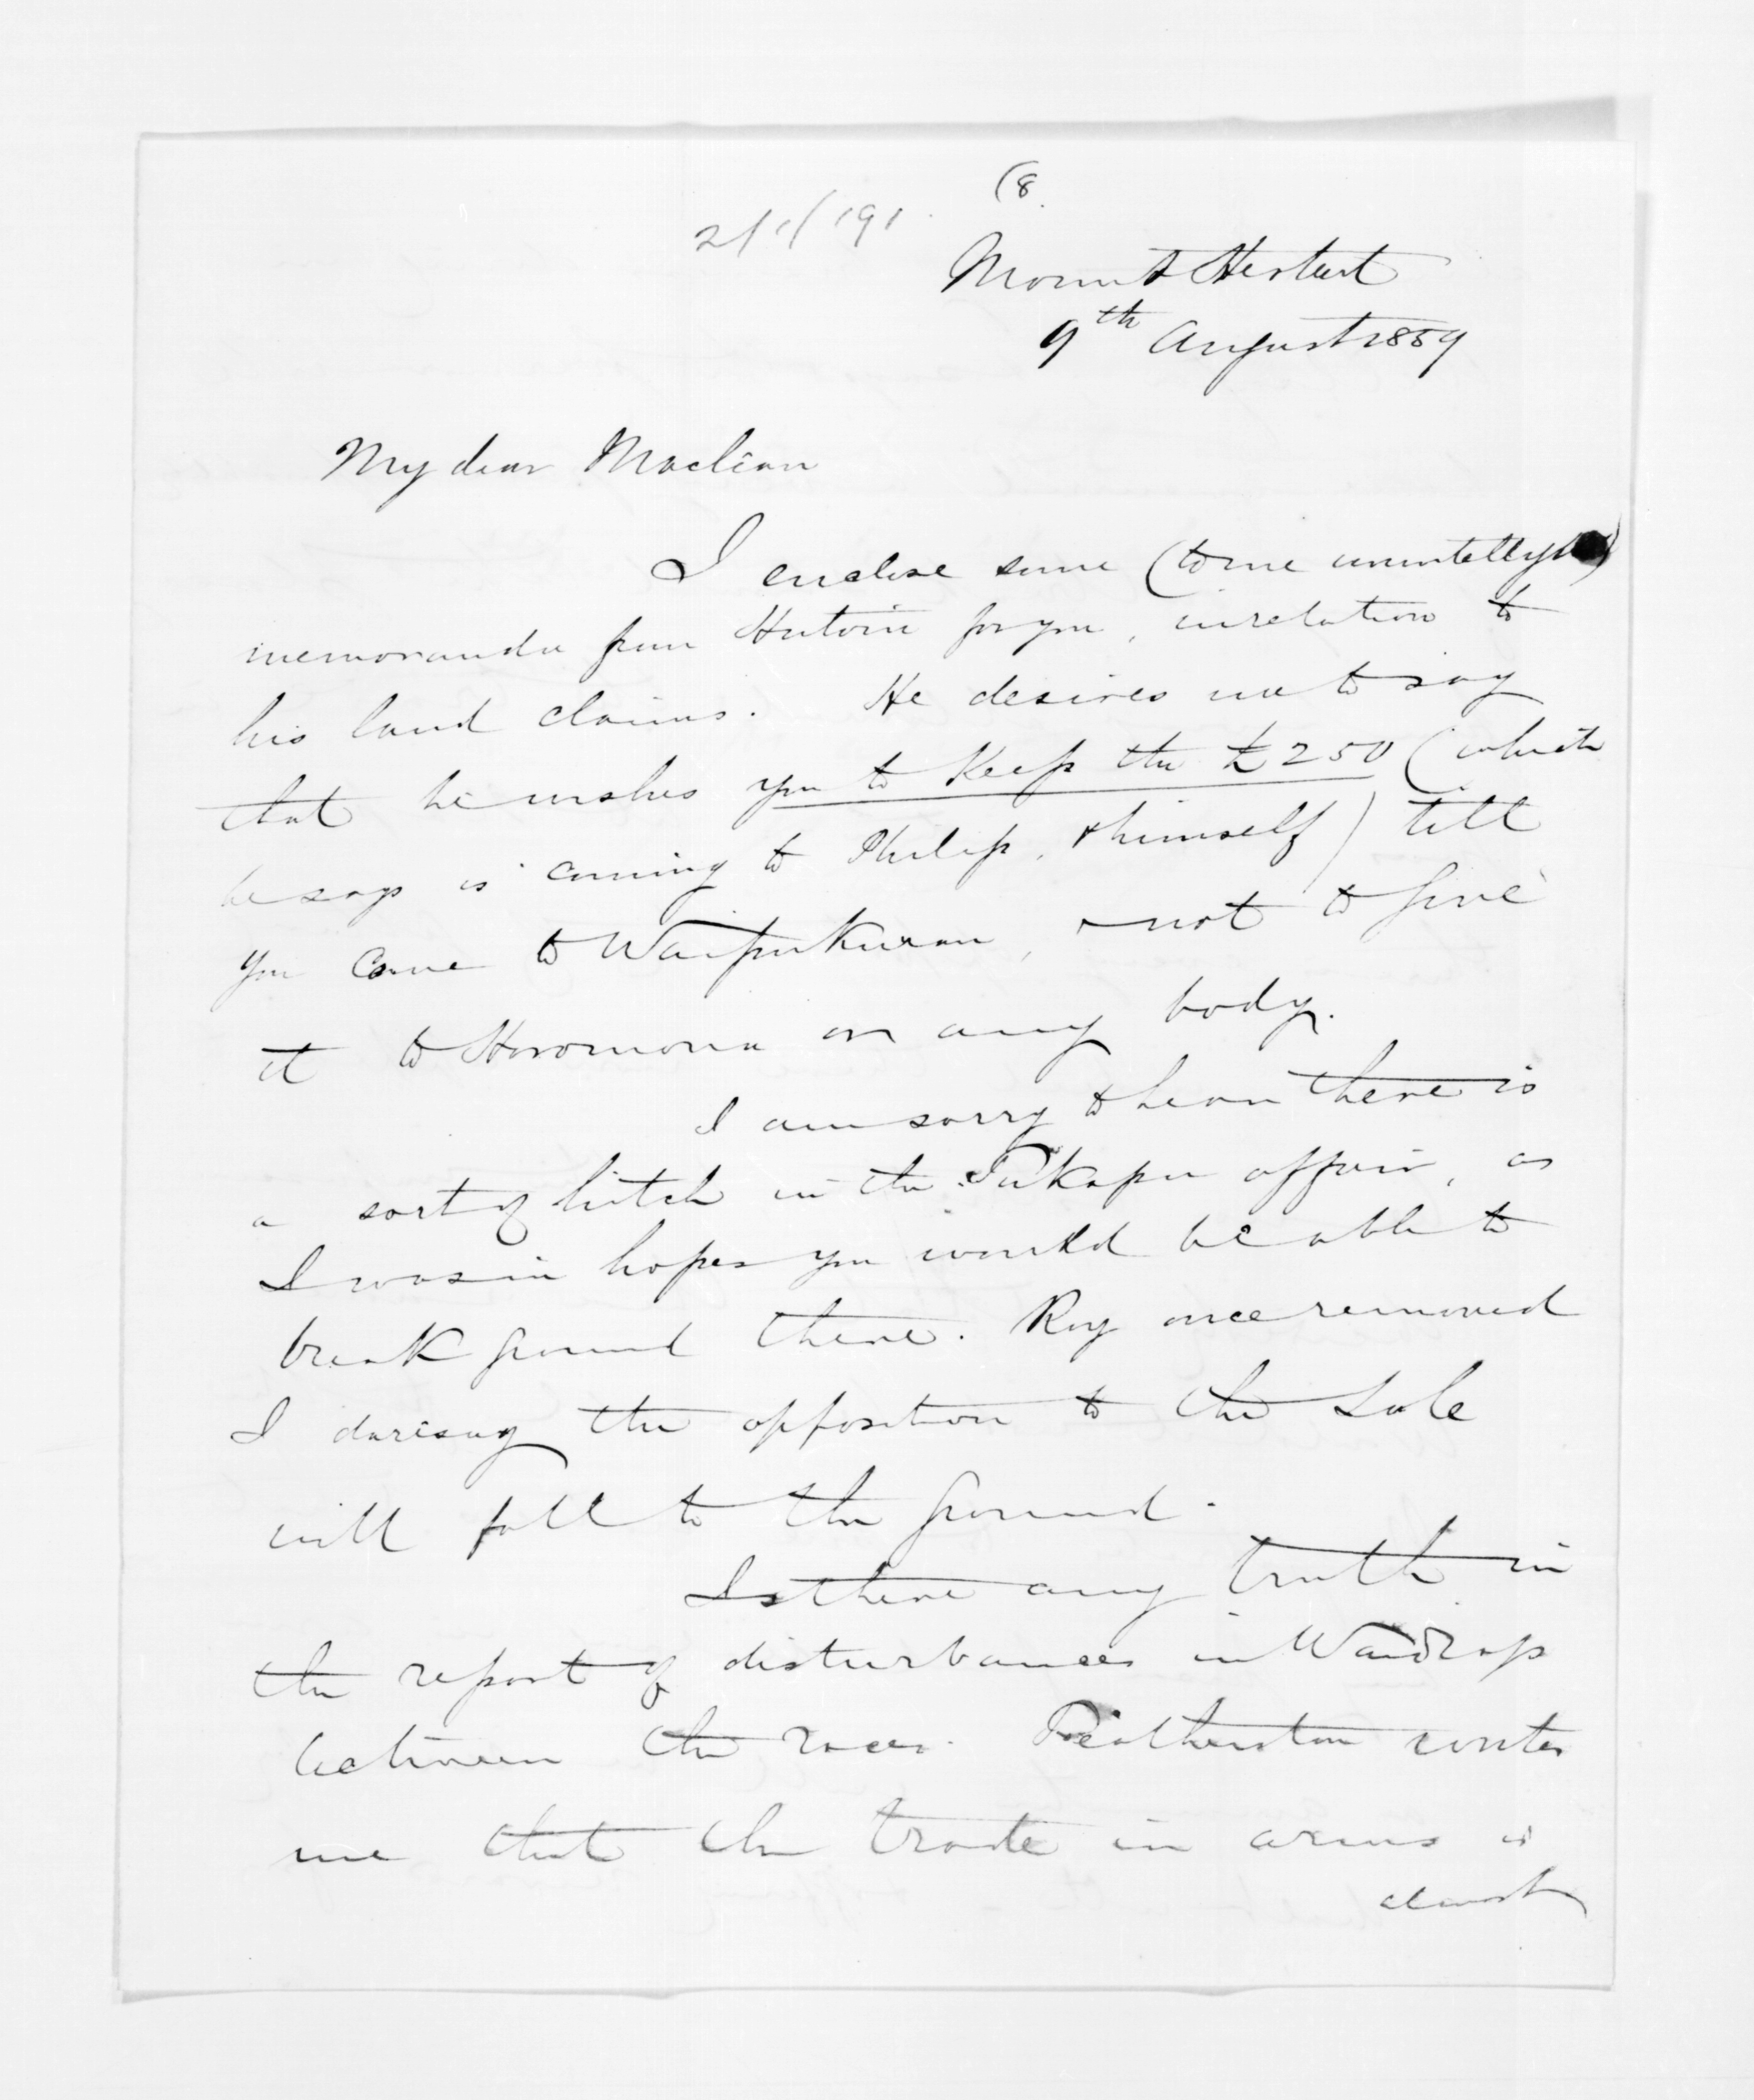 (8.
2/1/191.
Mount Herbert
9th August 1859
My dear Maclean
I enclose some (to me unintelligible)
memoranda from for you, in relation to
his land claims. He desires me to say
that he wishes you to keep the £250 (which
he says is coming to Philip, & himself) till
you come to Waipukurau, & not to give
it to Horomona or any body.
I am sorry to hear there is
a sort of hitch in the affair, as
I was in hopes you would be able to
break ground there. Roy once removed
I daresay the opposition to the Sale
will fall to the ground.
Is there any truth in
the report of disturbances in
between the races. Featherston writes
me that the trade in arms is
almost